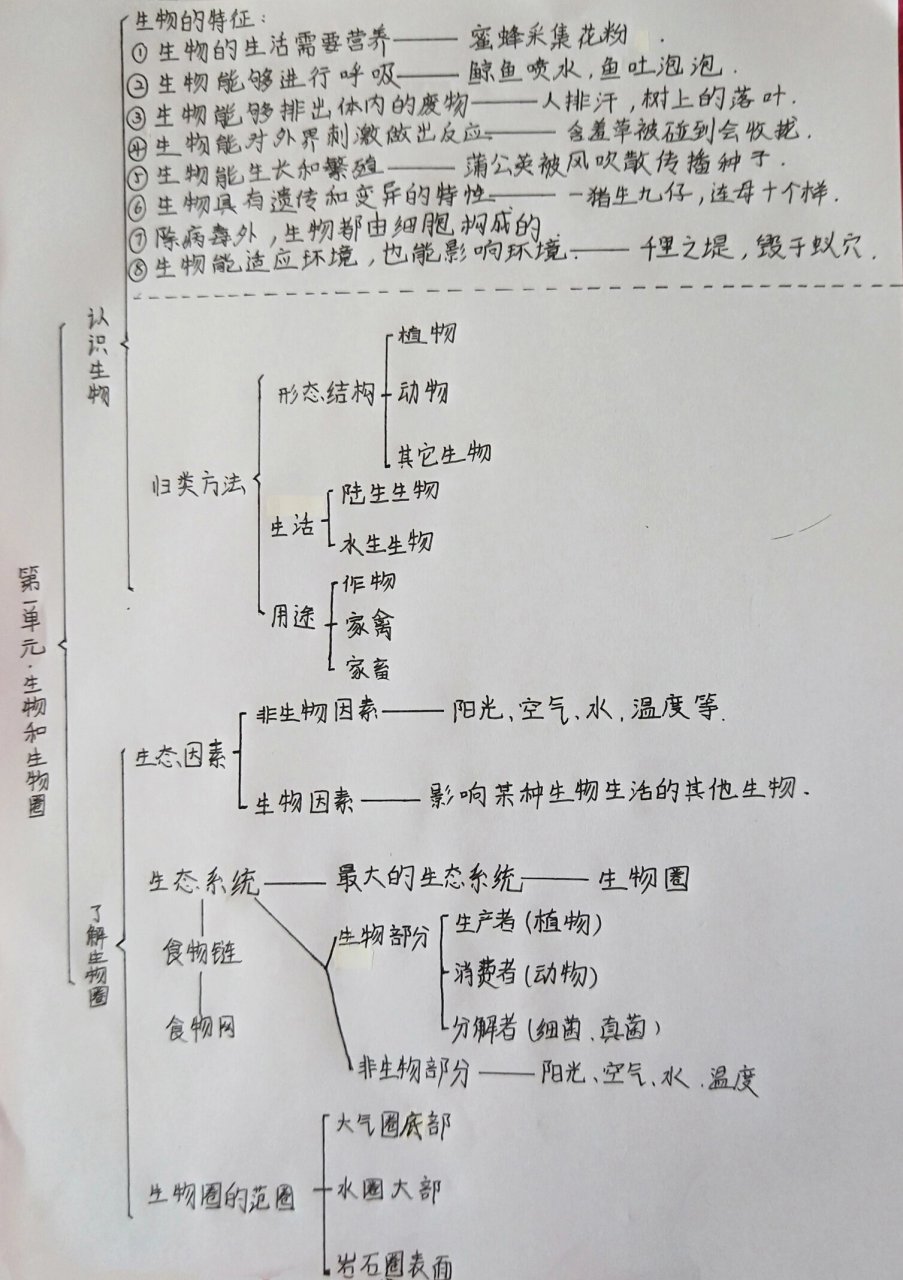 生物的特征：
① 生物的生活需要营养——蜜蜂采集花粉.
② 生物能够进行呼吸——鲸鱼喷水，鱼吐泡泡.
③ 生物能够排出体内的废物——人排汗，树上的落叶.
④ 生物能对外界刺激做出反应.——含羞草被碰到会收拢.
⑤ 生物能生长和繁殖——蒲公英被风吹散传播种子.
⑥ 生物具有遗传和变异的特性——一猪生九仔，连母十个样.
⑦ 除病毒外，生物都由细胞构成的.
⑧ 生物能适应环境，也能影响环境.——千里之堤，毁于蚁穴.
认识生物
植物
形态结构
动物
其它生物
归类方法
陆生生物
生活
水生生物
作物
用途
家禽
家畜
第一单元·生物和生物圈
非生物因素——阳光、空气、水、温度等.
生态因素
生物因素——影响某种生物生活的其他生物.
生态系统——最大的生态系统——生物圈
了解生物圈
生物部分
生产者(植物)
食物链
消费者(动物)
食物网
分解者(细菌、真菌)
非生物部分——阳光、空气、水、温度
大气圈底部
生物圈的范围
水圈大部
岩石圈表面